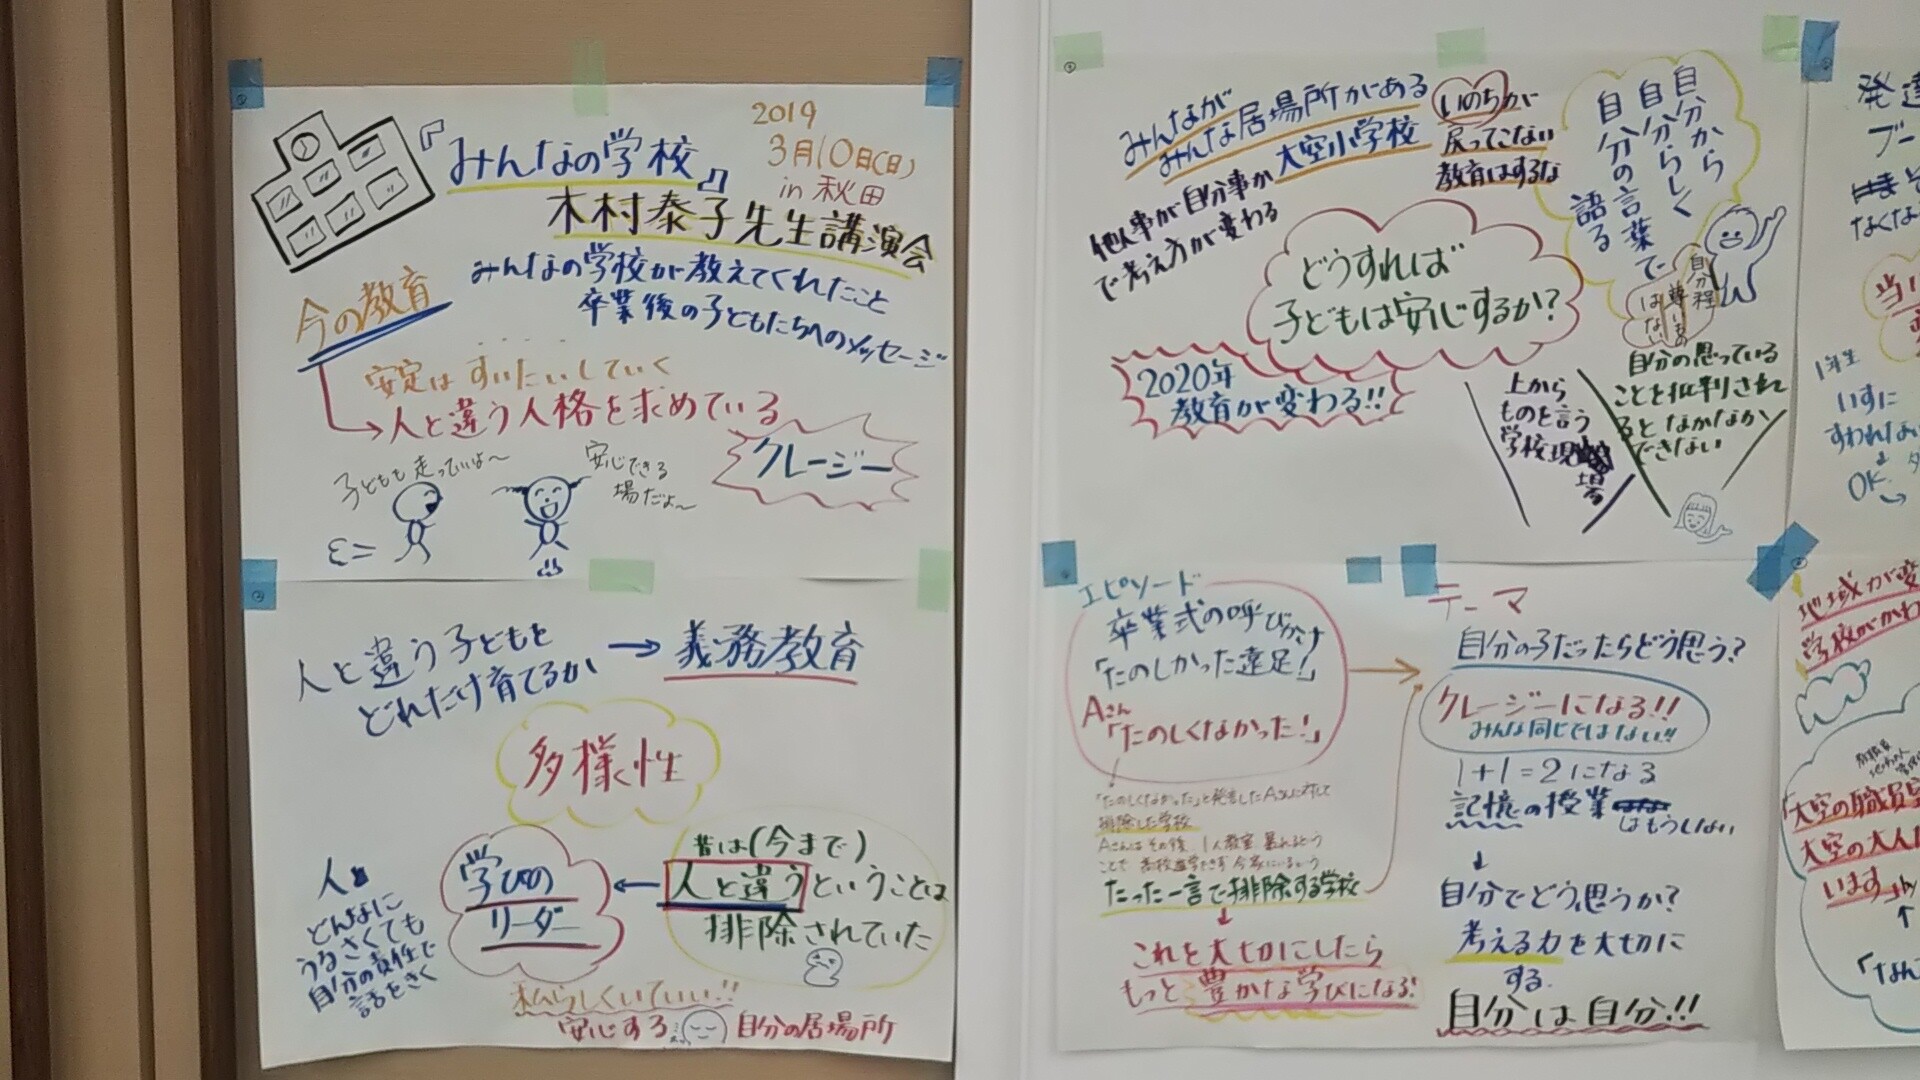 『みんなの学校』
2019
3月10日(日)
in 秋田
木村泰子先生講演会
みんなの学校が教えてくれたこと
卒業後の子どもたちへのメッセージ
今の教育
安定は すいたいしていく
人と違う人格を求めている
クレージー
子どもも走っていいよ〜
安心できる
場だよ〜
人と違う子どもを
どれだけ育てるか
→ 義務教育
多様性
昔は(今まで)
人と違うということは
排除されていた
学びの
リーダー
人と
どんなに
うるさくても
自分の責任で
話をきく
私らしくいていい!!
安心する
自分の居場所
みんなが
みんな居場所がある
大空小学校
いのちが
戻ってこない
教育はするな
他人事が自分事か
で考え方が変わる
どうすれば
子どもは安心するか?
自分から
自分らしく
自分の言葉で
語る
自分程
尊いもの
はない
2020年
教育が変わる!!
上から
ものを言う
学校現場
自分の思っている
ことを批判され
るとなかなか
できない
エピソード
卒業式の呼びかけ
「たのしかった遠足!」
Aさん
「たのしくなかった!」
「たのしくなかった」と発言したAさんに対して
排除した学校
Aさんはその後、1人教室、暴れるという
たった一言で排除する学校
これを大切にしたら
もっと豊かな学びになる!
テーマ
自分の子だったらどう思う?
クレージーになる!!
みんな同じではない!!
1+1=2になる
記憶の授業
はもうしない
自分でどう思うか?
考える力を大切に
する.
自分は自分!!
発達
ブー
なくな
当
1年生
いすに
すわれない
OK
地域が変
学校がかわ
「大空の職員室
大空の大人
います
「なん